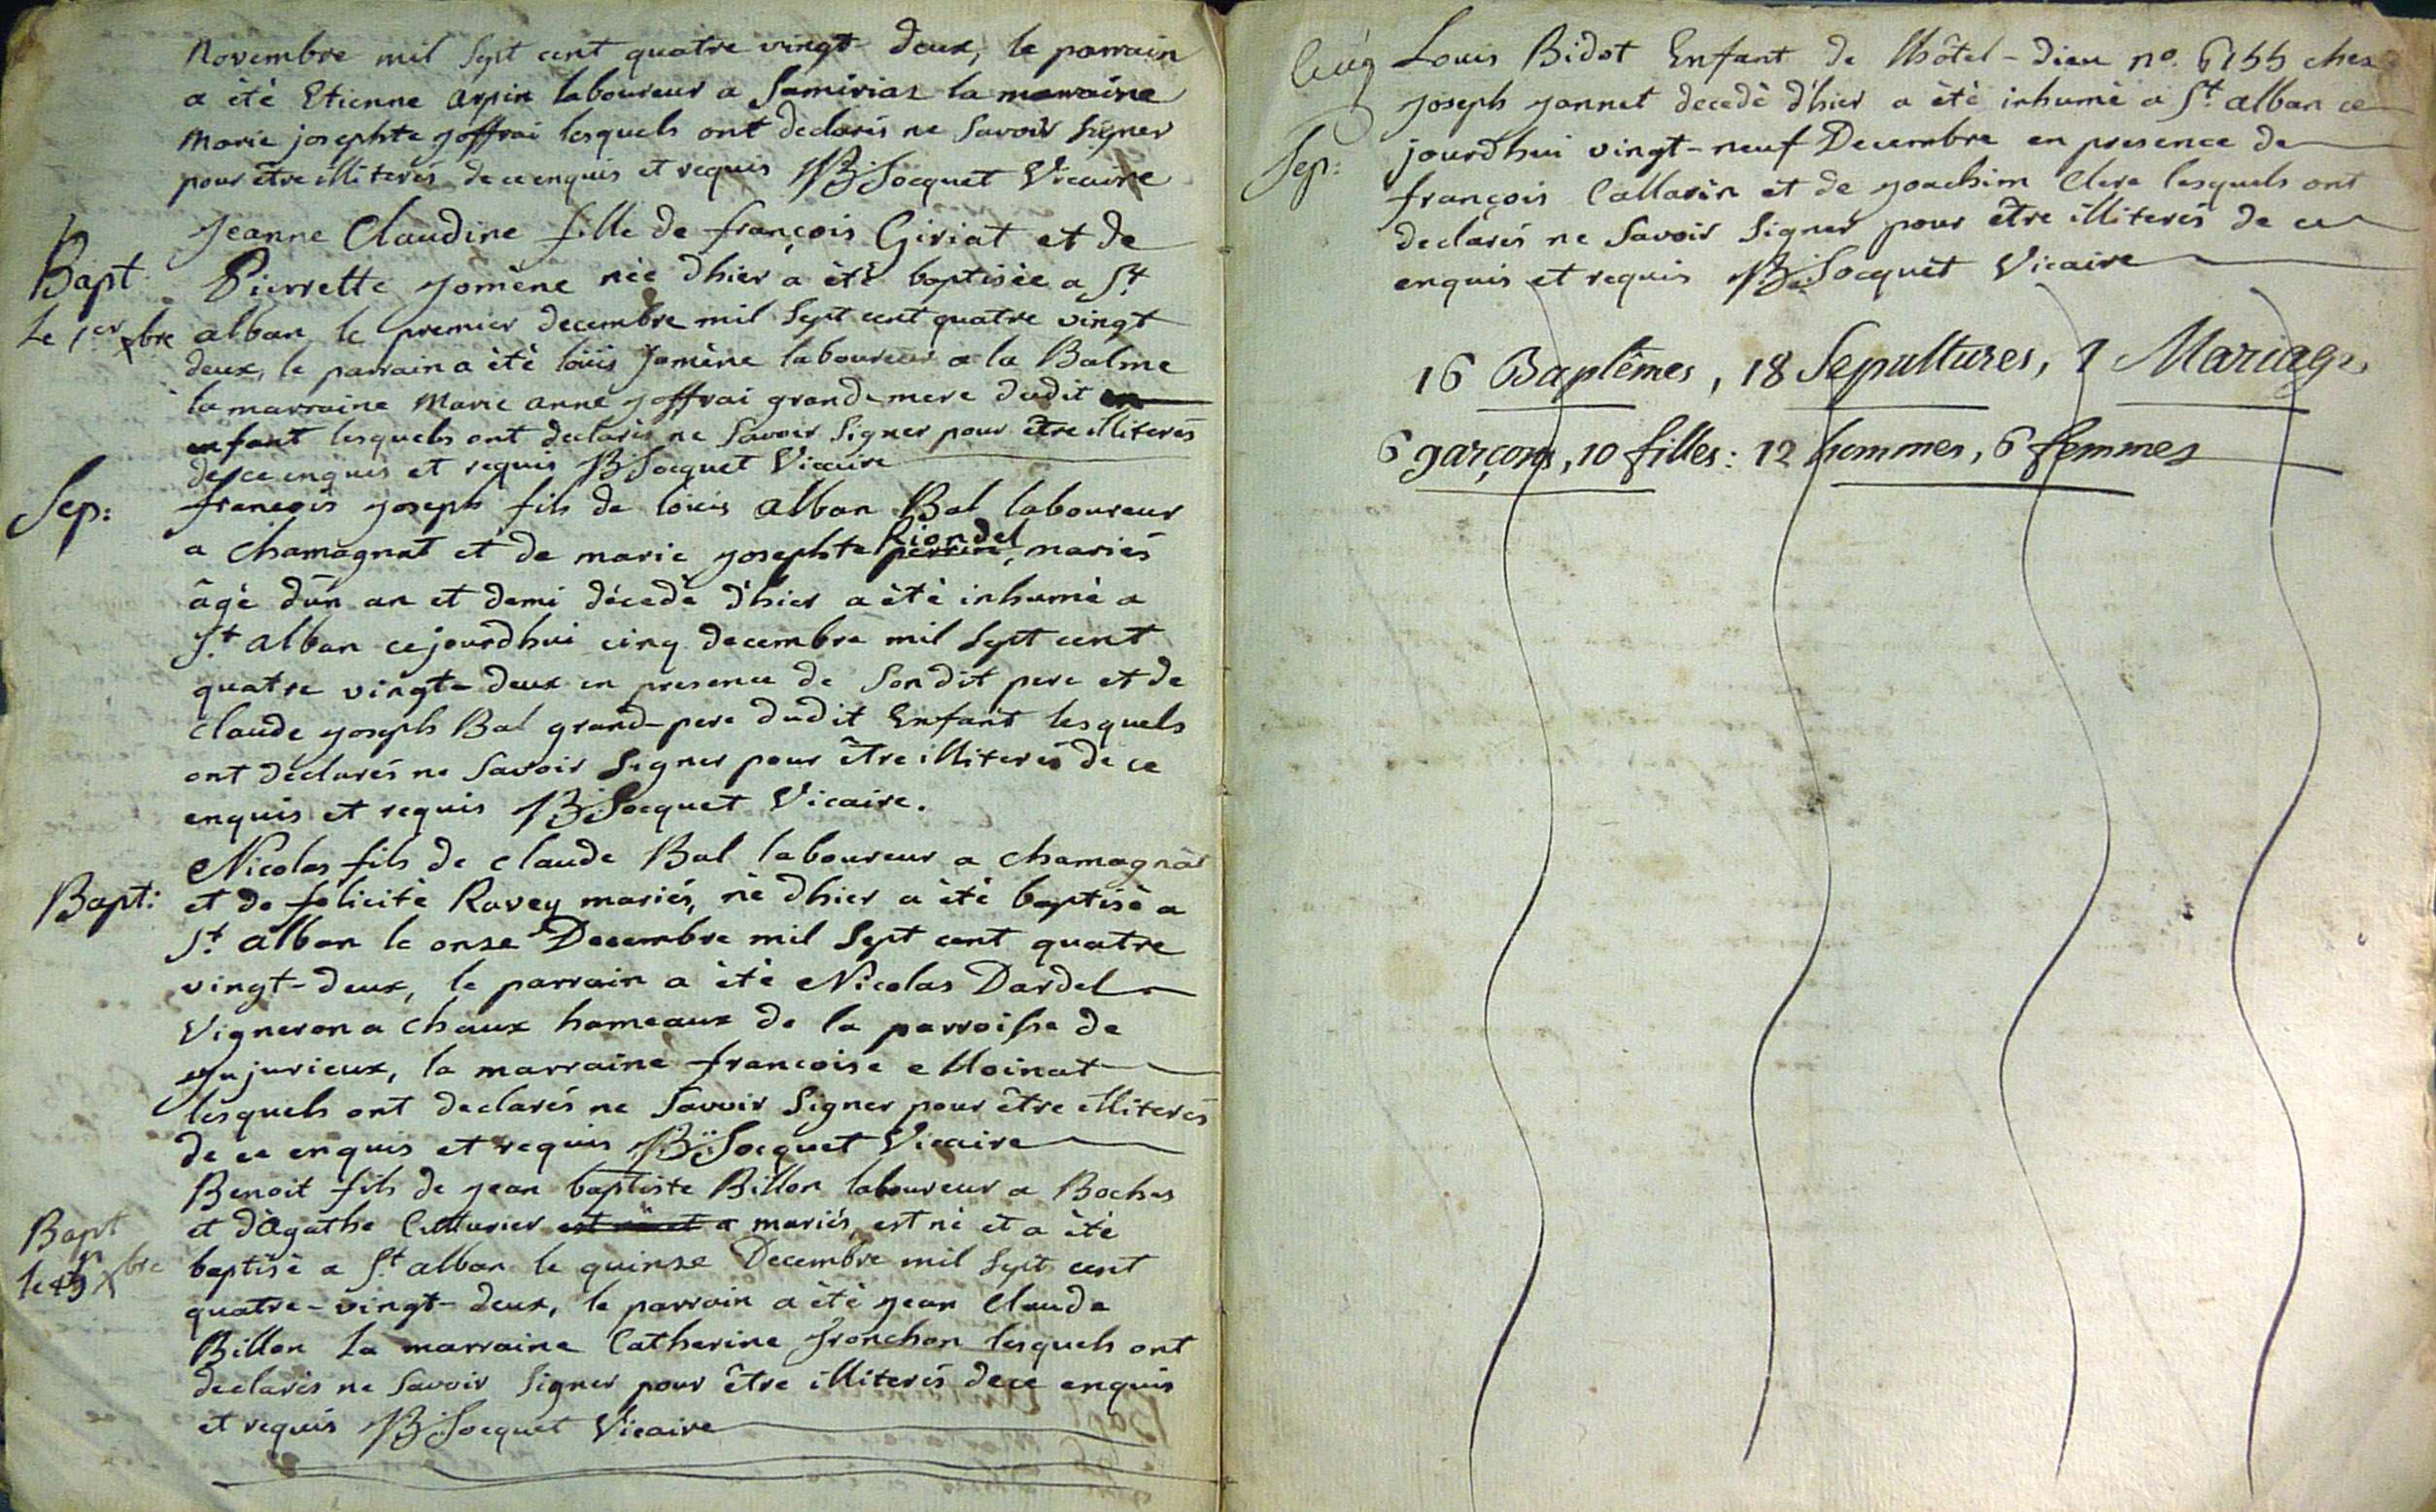 Novembre mil Sept cent quatre vingt- deux, le parrain
a été Etienne arpin laboureur a Samiriaz la marraine
Marie josephte joffrai lesquels ont declarés ne Savoir Signer
pour être illiterés de ce enquis et requis B Socquet Vicaire
Jeanne Claudine fille de françois Giriat et de
Bapt
Pierrette jomène née d'hier a été baptisée a St
Le 1er xbre
alban le premier decembre mil Sept cent quatre vingt
deux, le parrain a été loüis jomène laboureur a la Balme
la marraine Marie anne joffrai grande mere dudit en
enfant lesquels ont declarés ne Savoir Signer pour être illiterés
de ce enquis et requis B Socquet Vicaire
Sep:
francois joseph fils de loüis alban Bal laboureur
Riondel
a Chamagnat et de marie josephte perrin, mariés
âgé d'un an et demi décedé d'hier a été inhumé a
St alban cejourdhui cinq decembre mil Sept cent
quatre vingt- deux en presence de Sondit pere et de
Claude joseph Bal grand-pere dudit Enfant lesquels
ont déclarés ne Savoir Signer pour être illiterés de ce
enquis et requis B Socquet Vicaire.
Nicolas fils de Claude Bal laboureur a Chamagnat
Bapt:
et de felicité Ravey mariés, né d'hier a été baptisé a
St alban le onze Decembre mil Sept cent quatre
vingt-deux, le parrain a été Nicolas Dardel
Vigneron a Chaux hameaux de la parroisse de
jujurieux, la marraine francoise Moinat
lesquels ont declarés ne Savoir Signer pour être illiterés
de ce enquis et requis B Socquet Vicaire
Benoit fils de jean baptiste Billon laboureur a Boches
Bapt
et d'Agathe Cutturier est né et a mariés, est né et a été
le 15 xbre
baptisé a St alban le quinze Decembre mil Sept cent
quatre-vingt-deux, le parrain a été jean Claude
Billon La marraine Catherine Tronchon lesquels ont
declarés ne Savoir Signer pour être illiterés de ce enquis
et requis B Socquet Vicaire
Louis Bidot Enfant de lhôtel-dieu no. 6155 chez
joseph jannet decedé d'hier a été inhumé a St alban ce
Sep:
jourdhui vingt-neuf Decembre en presence de
françois Callarin et de joachim Clere lesquels ont
declarés ne Savoir Signer pour être illiterés de ce
enquis et requis B Socquet Vicaire
16 Baptêmes, 18 Sepultures, 1 Mariage
6 garçons, 10 filles: 12 hommes, 6 femmes